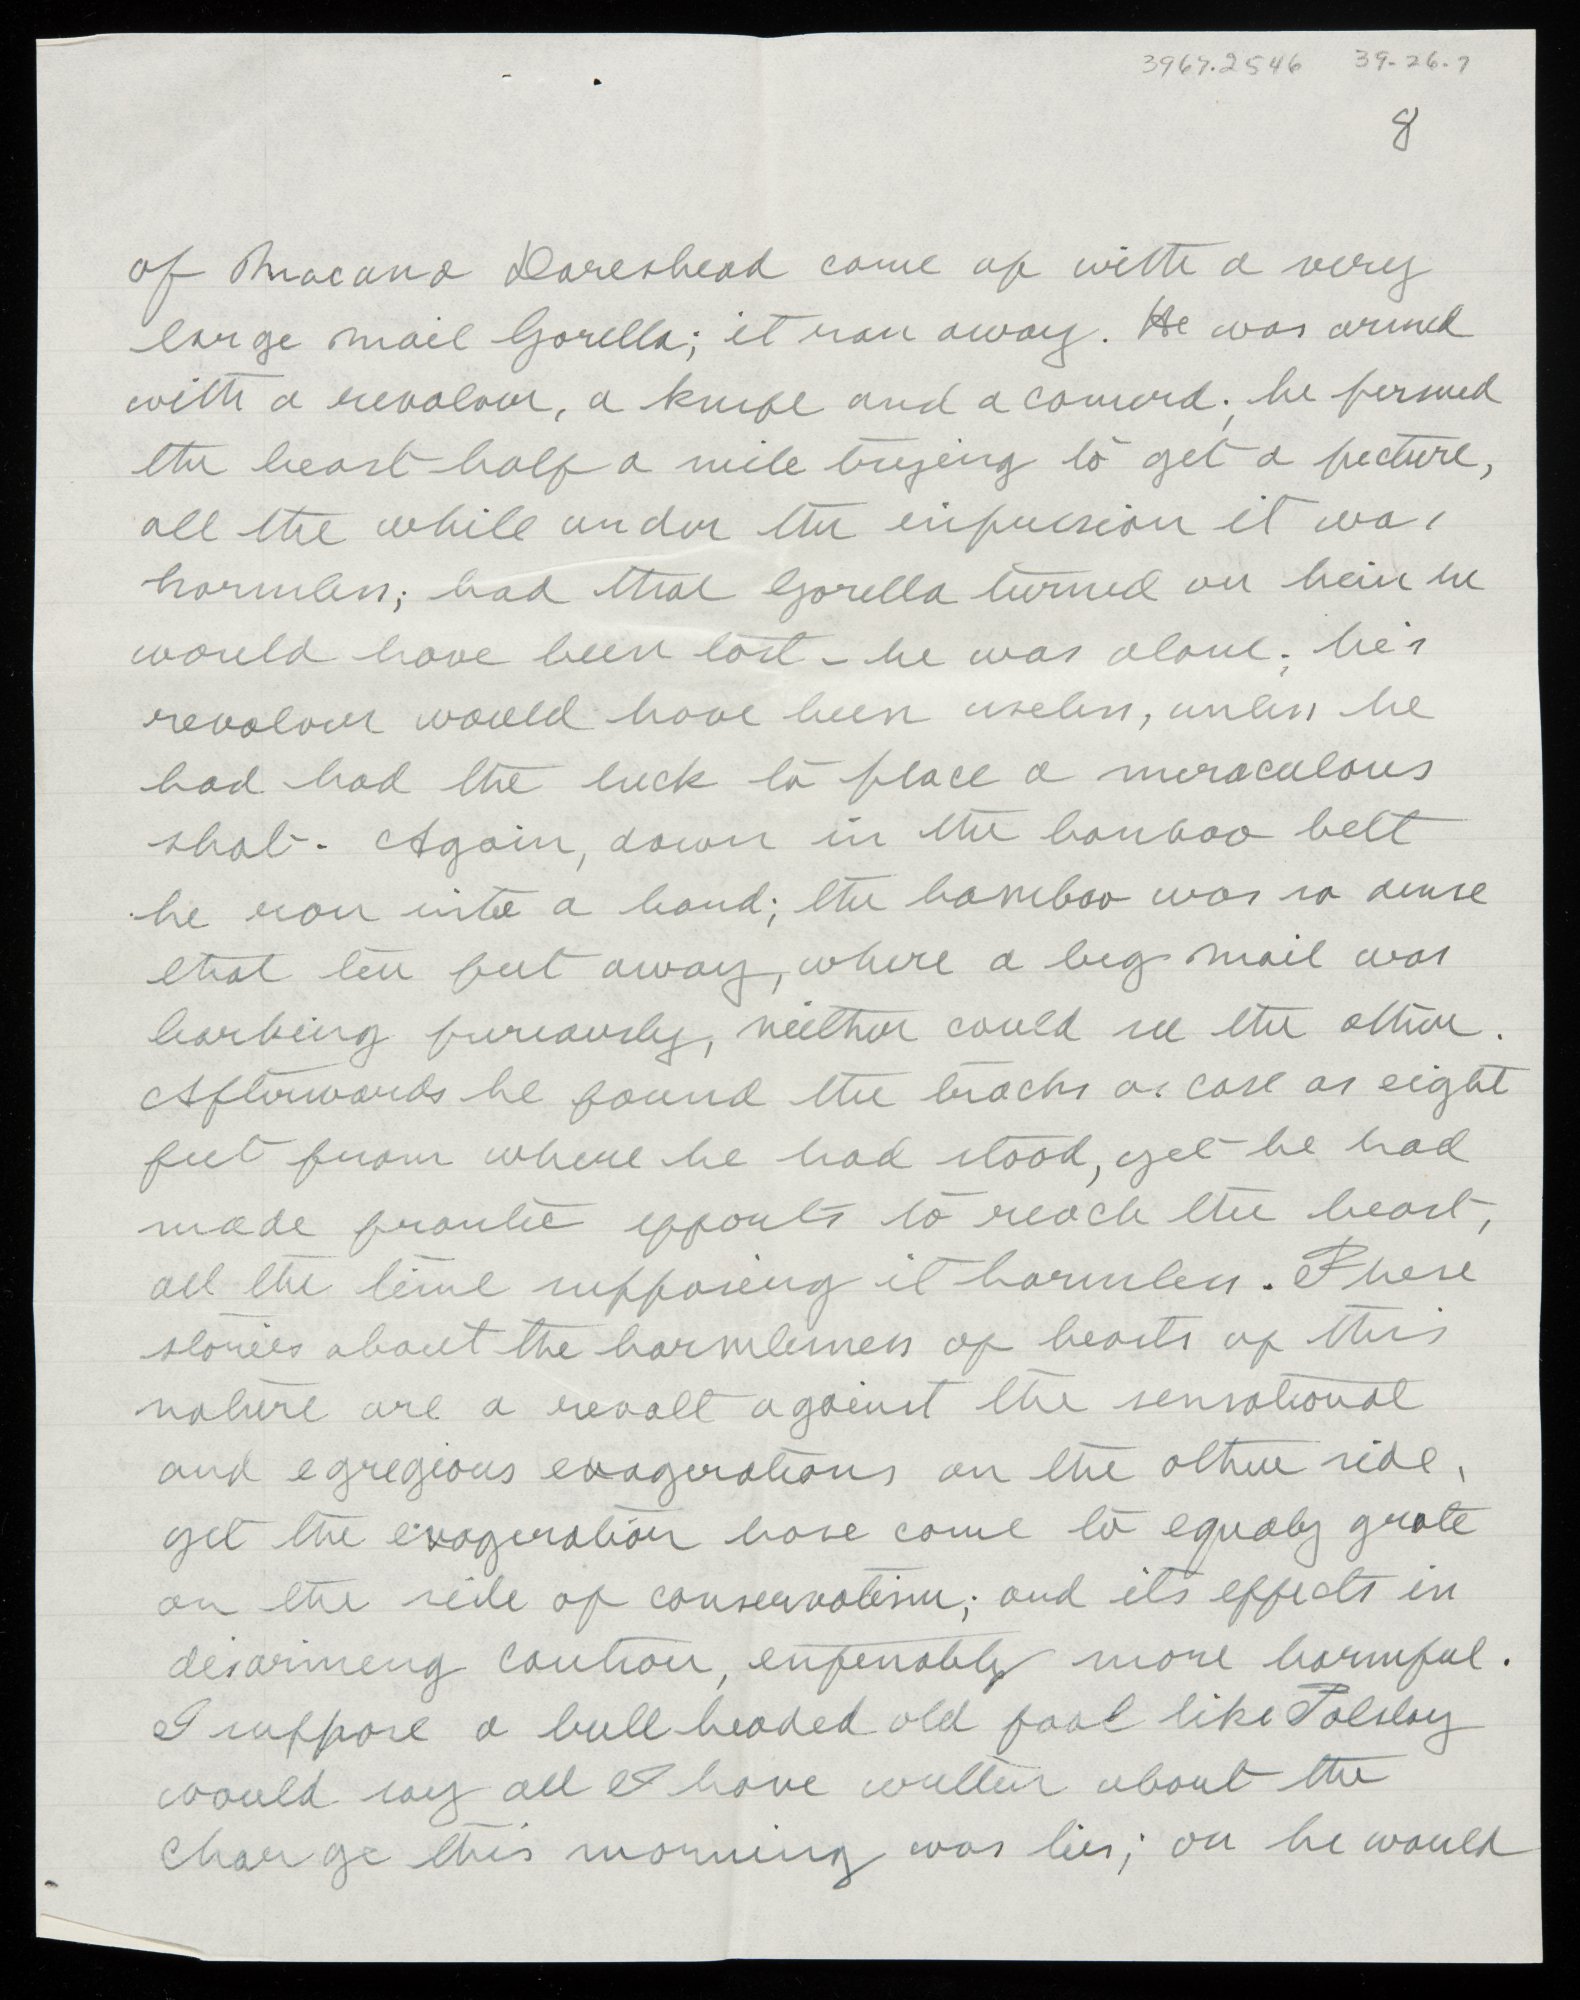 3967.2546 39-26.7
8
of Macana Dareshead come up with a very
large mail Gorella; it ran away. He was armed
with a revolour, a knife and a comerd; he persued
the beast half a mile trying to get a picture,
all the while under the inpression it was
harmless; had that Gorella turned on heim he
would have been lost - he was alone; he's
revolour would have been useless, unless he
had had the luck to place a meraculous
shot. Again, down in the banboo belt
he ran into a band; the bamboo was so dense
that ten feet away, where a beg mail was
barking fureously, neither could see the other.
Afterwards he found the tracks as cose as eight
feet from where he had stood, yet he had
made frantic efforts to reach the beast,
all the time supposeing it harmless. These
stories about the harmlessness of beasts of this
nature are a revolt against the sensational
and egregious exagerations on the other side,
yet the exageration have come to equaly grate
on the side of conservatism; and its effects in
disarmeng caution, enfenatly more harmful.
I suppose a bull headed old fool like Polsloy
would say all I have written about the
charge this morning was lies; or he would